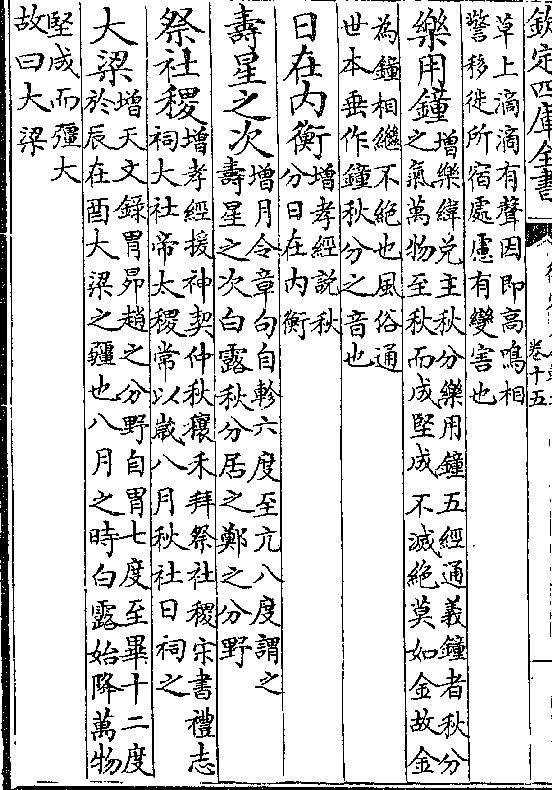 欽定四庫全書
卷十五
草上滴滴有聲因即高鳴相
警移徙所宿處慮有變害也
樂用鐘增樂緯兌主秋分樂用鐘五經通義鐘者秋分
之氣萬物至秋而成堅成不滅絕莫如金故金
為鐘相繼不絕也風俗通
世本垂作鐘秋分之音也
日在内衡增孝經說秋
分日在内衡
壽星之次增月令章句自軫六度至亢八度謂之
壽星之次白露秋分居之鄭之分野
祭社稷增孝經援神契仲秋穫禾拜祭社稷宋書禮志
祠大社帝太稷常以歲八月秋社日祠之
大梁增天文錄胃昴趙之分野自胃七度至畢十二度
於辰在酉大梁之疆也八月之時白露始降萬物
堅成而彊大
故曰大梁